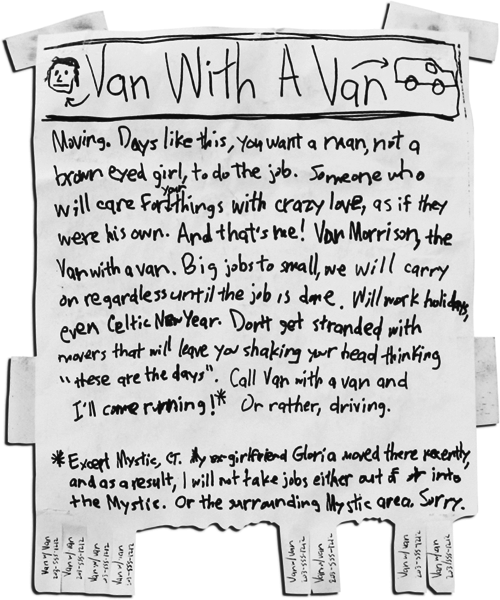 Van With A Van
Moving. Days like this, you want a man, not a
brown eyed girl, to do the job. Someone who
will care for your things with crazy love, as if they
were his own. And that's me! Van Morrison, the
Van with a van. Big jobs to small, we will carry
on regardless until the job is done. Will work holidays,
even Celtic New Year. Don't get stranded with
movers that will leave you shaking your head thinking
"these are the days". Call Van with a van and
I'll come running!* Or rather, driving.
*Except Mystic, CT. My ex-girlfriend Gloria moved there recently,
and as a result, I will not take jobs either out of or into
the Mystic. Or the surrounding Mystic area. Sorry.
Van w/ Van
203-555-7212
Van w/ van
203-555-7212
Van w/ van
203-555-7212
Van w/ van
203-555-7212
Van w/ van
203-555-7212
Van w/ van
203-555-7212
Van w/ van
203-555-7212
Van w/ van
203-555-7212